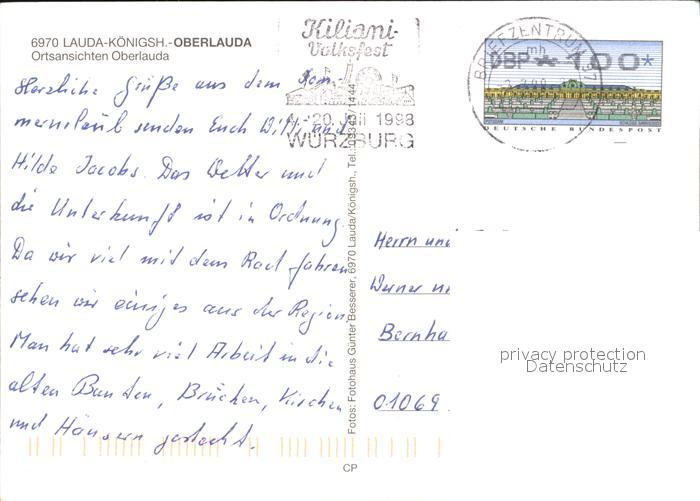 6970 LAUDA-KÖNIGSH.-OBERLAUDA
Ortsansichten Oberlauda
Kiliani-
Volksfest
-20. Juli 1998
WÜRZBURG
BRIEFZENTRUM 97
mh
DBP 1,00*
DEUTSCHE BUNDESPOST
Herzliche Grüße aus dem Som-
merurlaub senden Euch Willi und
Hilde Jacobs. Das Wetter und
die Unterkunft ist in Ordnung.
Da wir viel mit dem Rad fahren
sehen wir einiges aus der Region.
Man hat sehr viel Arbeit in die
alten Bauten, Brücken, Kirchen
und Häusern gesteckt.
Fotos: Fotohaus Günter Besserer, 6970 Lauda/Königsh., Tel.
Herrn und
Werner
Bernha
01069
privacy protection
Datenschutz
CP